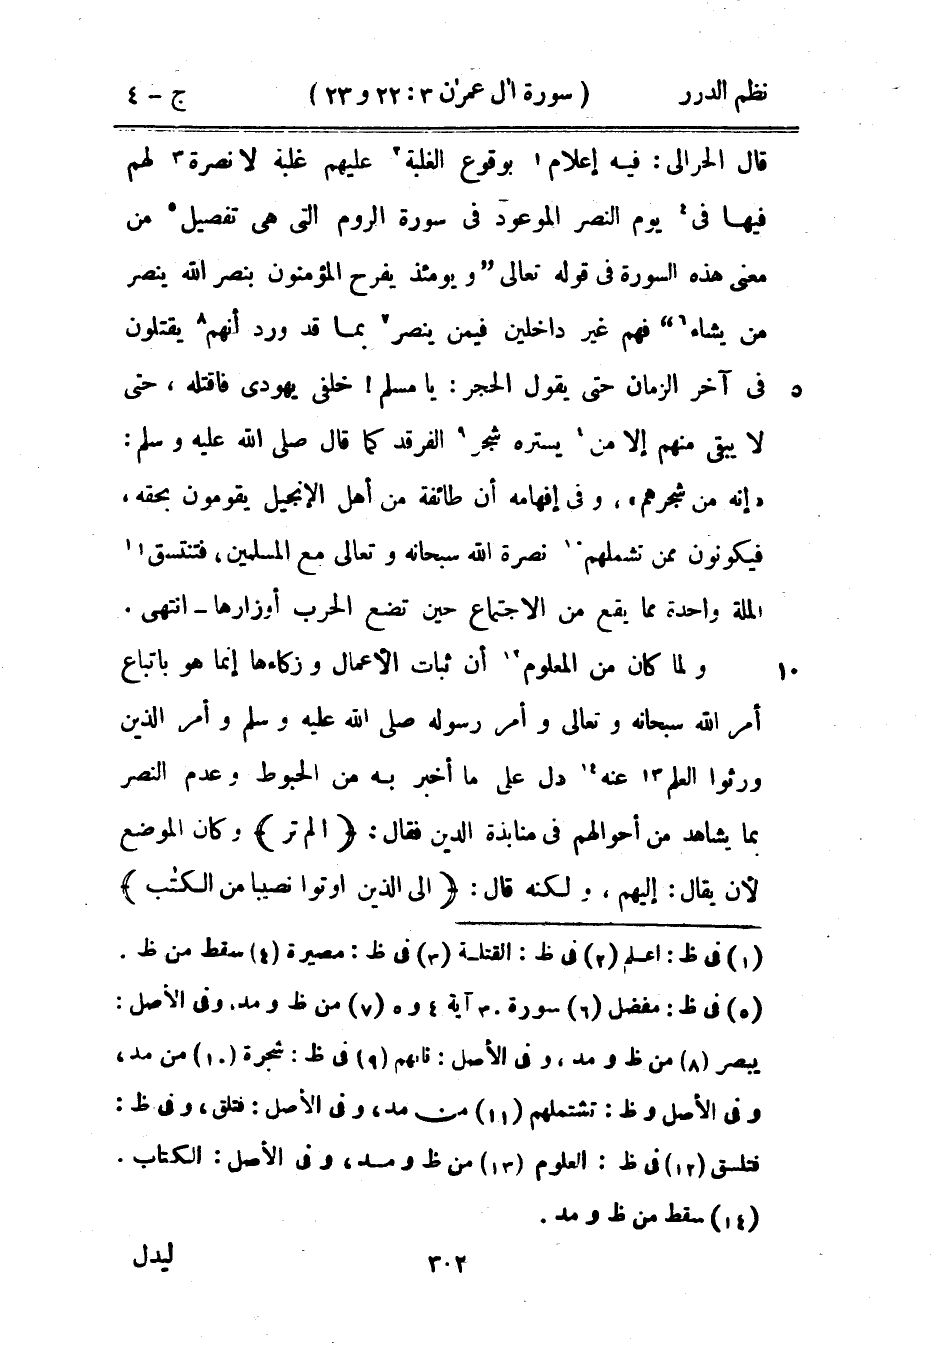 نظم الدرر ( سورة اٰل عمرٰن ٣ : ٢٢ و ٢٣ ) ج - ٤
قال الحرالى : فيه إعلام ١ بوقوع الغلبة ٢ عليهم غلبة لا نصرة ٣ لهم
فيها فى ٤ يوم النصر الموعود فى سورة الروم التى هى تفصيل ٥ من
معنى هذه السورة فى قوله تعالى ”و يومئذ يفرح المؤمنون بنصر الله ينصر
من يشاء ٦“ فهم غير داخلين فيمن ينصر ٧ بما قد ورد أنهم ٨ يقتلون
فى آخر الزمان حتى يقول الحجر : يا مسلم ! خلفى يهودى فاقتله ، حتى ٥
لا يبقى منهم إلا من ٤ يستره شجر ٩ الفرقد كما قال صلى الله عليه و سلم :
«إنه من شجرهم» ، و فى إفهامه أن طائفة من أهل الإنجيل يقومون بحقه ،
فيكونون ممن تشملهم ١٠ نصرة الله سبحانه و تعالى مع المسلمين ، فتنتسق ١١
الملة واحدة مما يقع من الاجتماع حين تضع الحرب أوزارها - انتهى .
و لما كان من المعلوم ١٢ أن ثبات الأعمال و زكاءها إنما هو باتباع ١٠
أمر الله سبحانه و تعالى و أمر رسوله صلى الله عليه و سلم و أمر الذين
ورثوا العلم ١٣ عنه ١٤ دل على ما أخبر به من الحبوط و عدم النصر
بما يشاهد من أحوالهم فى منابذة الدين فقال : ﴿ الم تر ﴾ و كان الموضع
لأن يقال : إليهم ، و لكنه قال : ﴿ الى الذين اوتوا نصيبا من الكتٰب ﴾
(١) فى ظ : اعلم (٢) فى ظ : القتلة (٣) فى ظ : مصيرة (٤) سقط من ظ .
(٥) فى ظ : مفضل (٦) سورة ٣٠ آية ٤ و ٥ (٧) من ظ و مد ، وفى الأصل :
يبصر (٨) من ظ و مد ، و فى الأصل : فانهم (٩) فى ظ : شجرة (١٠) من مد ،
و فى الأصل و ظ : تشتملهم (١١) من مد ، و فى الأصل : فتلق ، و فى ظ :
فتلسق (١٢) فى ظ : العلوم (١٣) من ظ و مد ، و فى الأصل : الكتاب .
(١٤) سقط من ظ و مد .
٣٠٢ ليدل